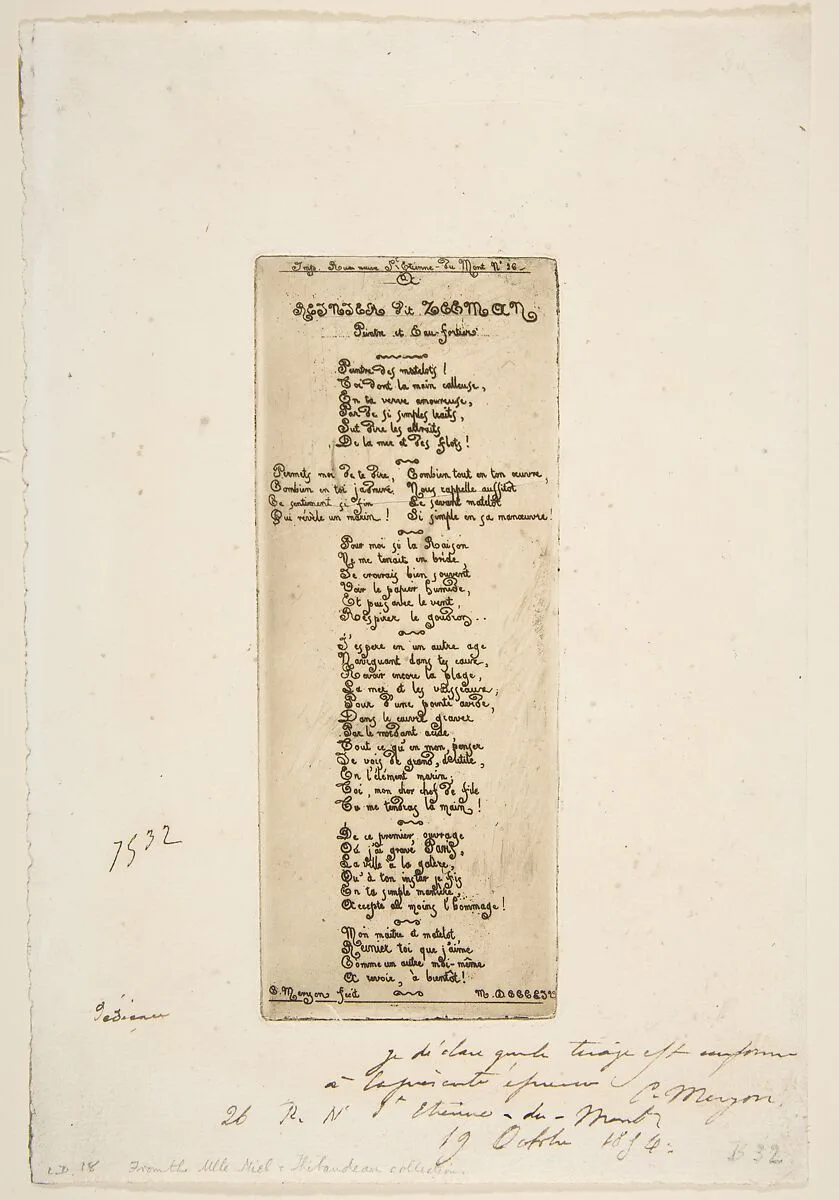 Imp. Rue neuve St Etienne-du Mont No 26.
A
REINIER dit ZEEMAN
Peintre et Eau-fortier.
Peintre des matelots!
Toi dont la main calleuse,
En ta verve amoureuse,
Par de si simples traits,
Sut dire les attraits
De la mer et des flots!
Permets moi de te dire,
Combien en toi j'admire
Ce sentiment si fin
Qui révèle un marin!
Combien tout en ton œuvre,
Nous rappelle aussitot
Le savant matelot
Si simple en sa manœuvre!
Pour moi si la Raison
Ne me tenait en bride,
Je croirais bien souvent
Voir le papier humide,
Et puis avec le vent,
Respirer le goudron..
J'espere en un autre age
Naviguant dans tes eaux,
Revoir encore la plage,
La mer et les vaisseaux;
Pour d'une pointe avide,
Dans le cuivre graver
Par le mordant acide
Tout ce qu'en mon penser
Je vois de grand, d'utile,
En l'élément marin;
Toi, mon cher chef de file
Tu me tendras la main!
De ce premier ouvrage
Où j'ai gravé Paris,
La ville à la galère,
Qu'à ton instar je fis
En ta simple manière,
Accepte au moins l'hommage!
Mon maitre et matelot
Reinier toi que j'aime
Comme un autre moi-même
A revoir, à bientôt!
C. Meryon fecit
M. DCCCLIV
7532
je déclare que le tirage est conforme
à la présente épreuve C. Meryon.
26 R. N St Etienne-du-Mont
19 Octobre 1854.
L.D. 18 From the Mlle Niel + Thibaudeau collections
B 32